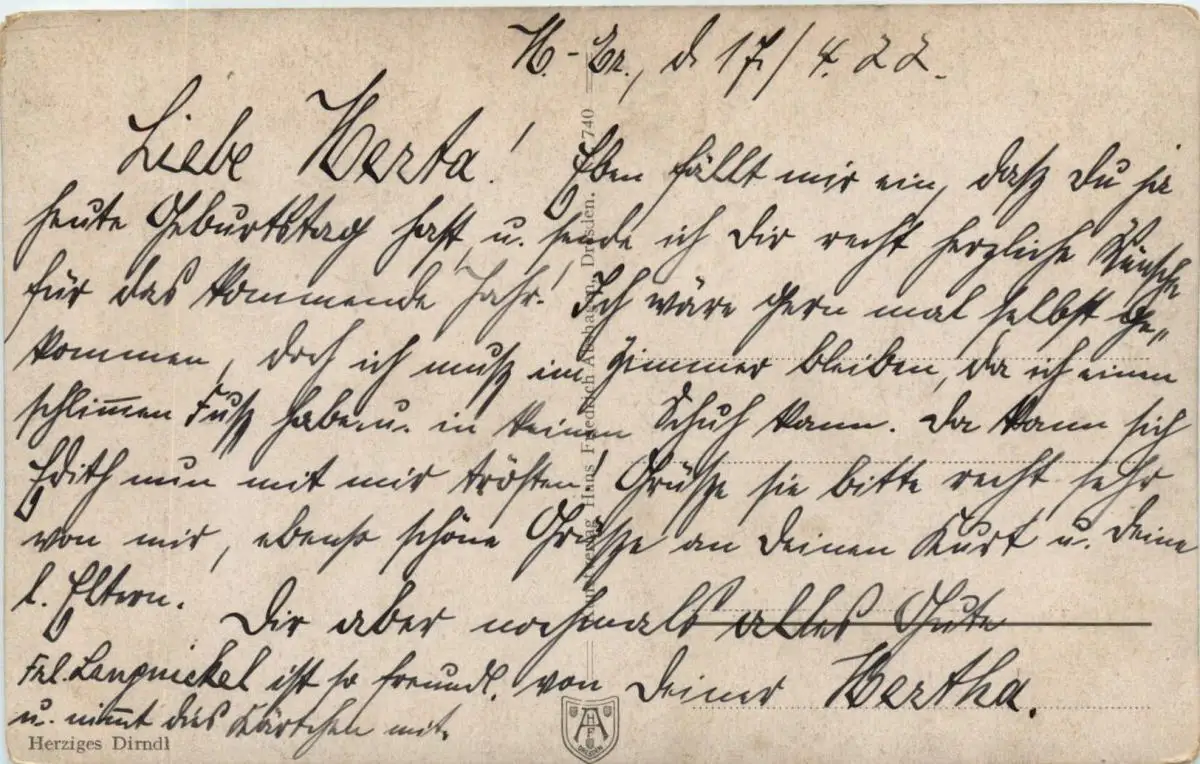 H.-Br., d. 17./4.22.
Liebe Herta! Eben fällt mir ein, daß Du ja
heute Geburtstag hast, u. sende ich Dir recht herzliche Wünsche
für das kommende Jahr! Ich wäre gern mal selbst ge„
kommen, doch ich muß im Zimmer bleiben, da ich einen
schlim̅en Fuß habe u. in keinen Schuh kann. Da kann sich
Edith nun mit mir trösten! Grüße sie bitte recht sehr
von mir, ebenso schöne Grüße an Deinen Kurt u. Deine
l. Eltern.
Dir aber nochmals alles Gute
von Deiner Hertha.
Frl. Langnickel ist so freundl.
u. nim̅t dies Kärtchen mit.
Hans Friedrich Dresden. 740
Herziges Dirndl
HAF
DRESDEN